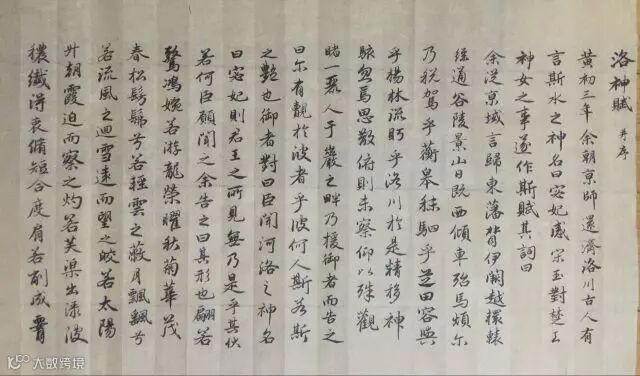 洛神賦 并序
黃初三年余朝京師還濟洛川古人有
言斯水之神名曰宓妃感宋玉對楚王
神女之事遂作斯賦其詞曰
余從京域言歸東藩背伊闕越轘轅
經通谷陵景山日既西傾車殆馬煩尓
乃税駕乎蘅皋秣駟乎芝田容與
乎楊林流眄乎洛川於是精移神
駭忽焉思散俯則未察仰以殊觀
睹一麗人于巖之畔乃援御者而告之
曰尓有覿於彼者乎彼何人斯若斯
之艷也御者對曰臣聞河洛之神名
曰宓妃則君王之所見無乃是乎其狀
若何臣願聞之余告之曰其形也翩若
驚鴻婉若游龍榮曜秋菊華茂
春松髣髴兮若輕雲之蔽月飄飖兮
若流風之迴雪遠而望之皎若太陽
升朝霞迫而察之灼若芙渠出淥波
穠纖得衷脩短合度肩若削成
大数跨境